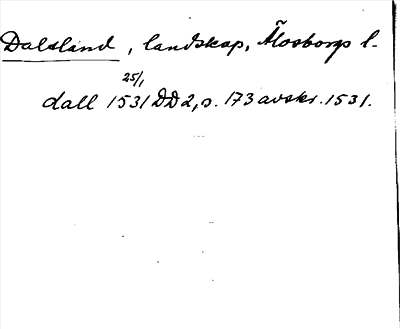 Dalsland, landskap, Älvsborgs l.
25/1
dall 1531 DD 2, s. 173 avskr. 1531.